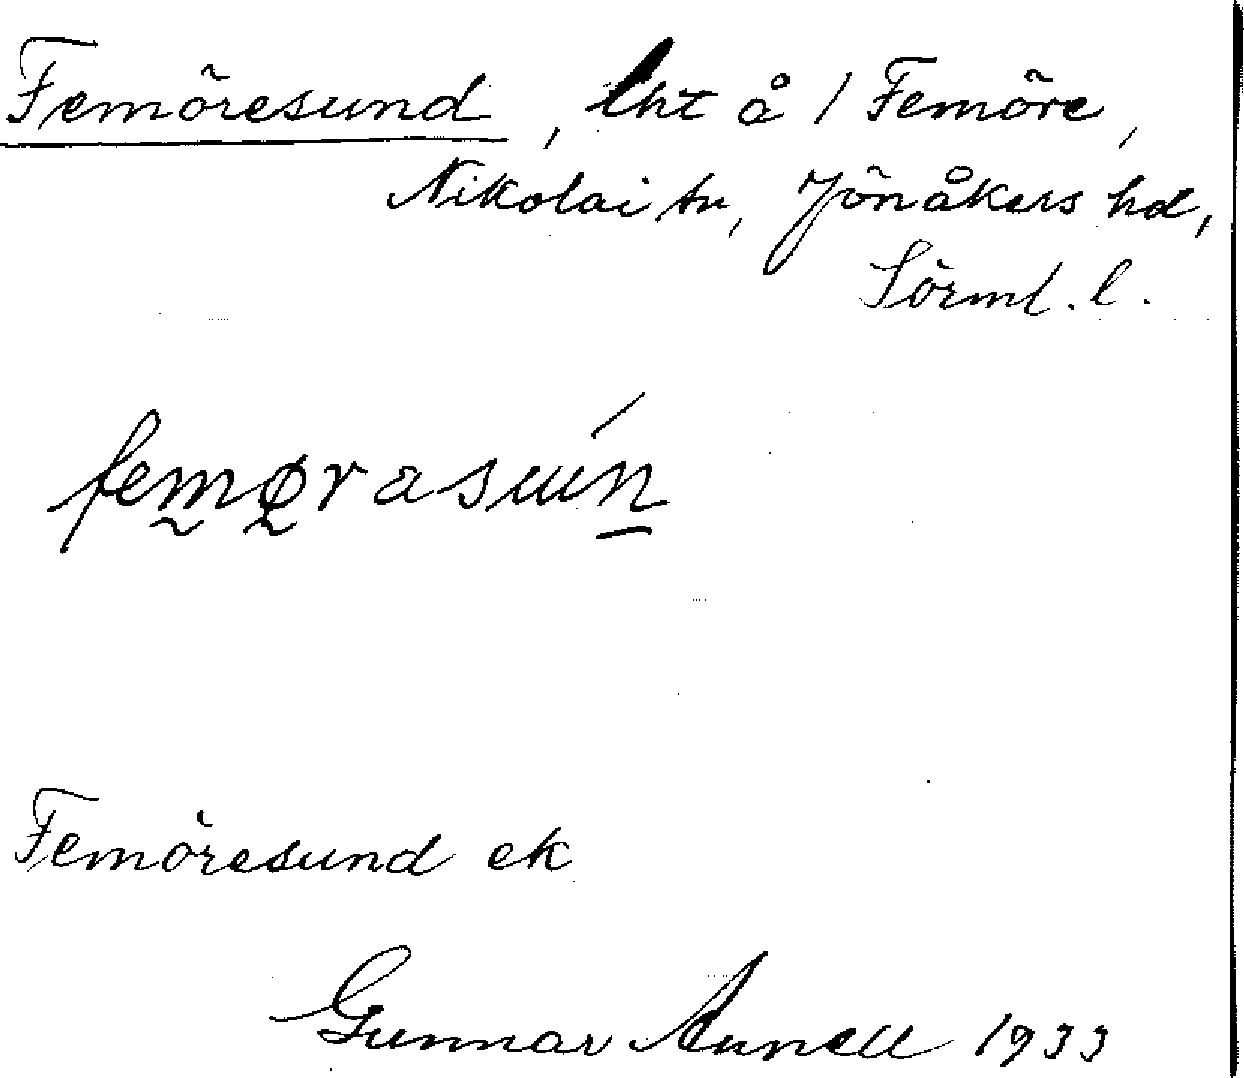 Femöresund, lht å 1 Femöre,
Nikolai sn, Jönåkers hd,
Sörml. l.
femørasuń
Femöresund ek
Gunnar Annell 1933